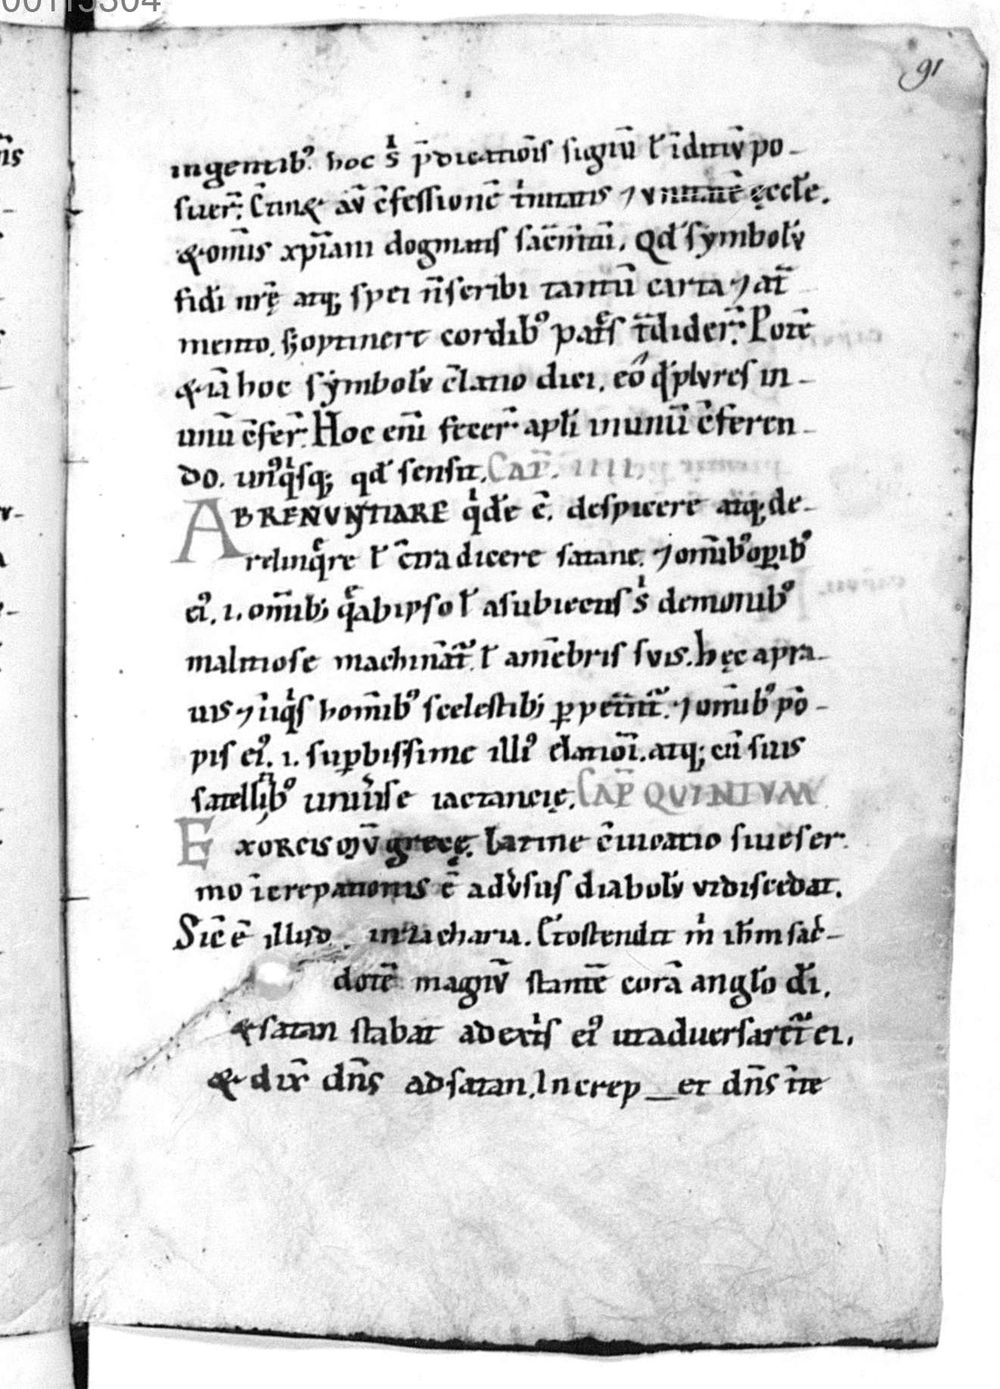 00115304
91
ingentib᷒. hoc s̾ p̄dicatiōis signū ł īditiū po-
suer̄. Ctinet̄ aū c̄fessionē t̾nitatis ⁊ vnitatē ęccłe.
& om̄is xp̄iani dogmatis sac̄m̄tū. Qd̾ symbolū
fidi nr̄ę atq; spei n̄ scribi tantū carta ⁊ at̄
mento. s; optinere cordib᷒ patr̄s t̄dider̄. Potē
& iā hoc symbolū c̄latio dici. eo᷒ qd̾ plures in-
unū c̄fer̄. Hoc eni fecer̄ apłi in unū c̄feren-
do. unq̾sq; qd̾ sensit. CAP̄. IIII.
ABRENVNTIARE q̾dē ē. despicere atq; de-
relinq̾re ł c̄tra dicere satane. ⁊ om̄ib᷒ opib᷒
ei᷒. .i. om̄ib; q̄ ab ipso ł a subiectis s̾ demonib᷒
malitiose machināt̄. ł a mēbris suis. hęc a pra-
uis ⁊ iniq̾s hom̄ib᷒ scelestib; ppet̄nt̄. ⁊ om̄ib᷒ pō-
pis ei᷒. .i. supbissime illi᷒ elatiōi. atq; cū suis
satellitib᷒ uniūse iactancię. CAP̄ QVINTVM
EXORCISMV̄ grece. Latine c̄iuratio siue ser-
mo īcrepationis ē adūsus diabolū ut discedat.
Sic̄ ē illud in zacharia. Et ostendit m̾ ih̄m sac̾-
dotē magnū stantē corā angło dī.
& satan stabat ad ext̾s ei᷒ ut aduersaret̄ ei.
& dix̄ dn̄s ad satan. Increp__et dn̄s in te